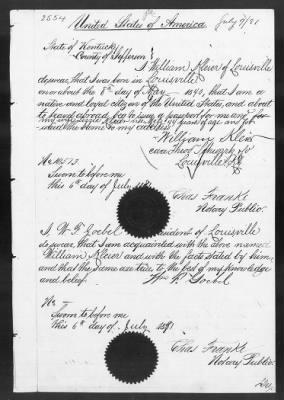 2554
July 7/91
United States of America
State of Kentucky
County of Jefferson
I William Kleier of Louisville
do swear, that I was born in Louisville
on or about the 8th day of May 1840, that I am a
native and loyal citizen of the United States, and about
to travel abroad, beg to issue a passport for me and
William Kleier
care Theo. Schwartz & Co
Louisville Ky
Sworn to before me
this 6th day of July
Chas Franke
Notary Public
I, W. P. Goebel resident of Louisville
do swear, that I am acquainted with the above named
William Kleier and with the facts stated by him,
and that the same are true to the best of my knowledge
and belief.
Wm P. Goebel
Sworn to before me
this 6th day of July 1891
Chas Franke
Notary Public